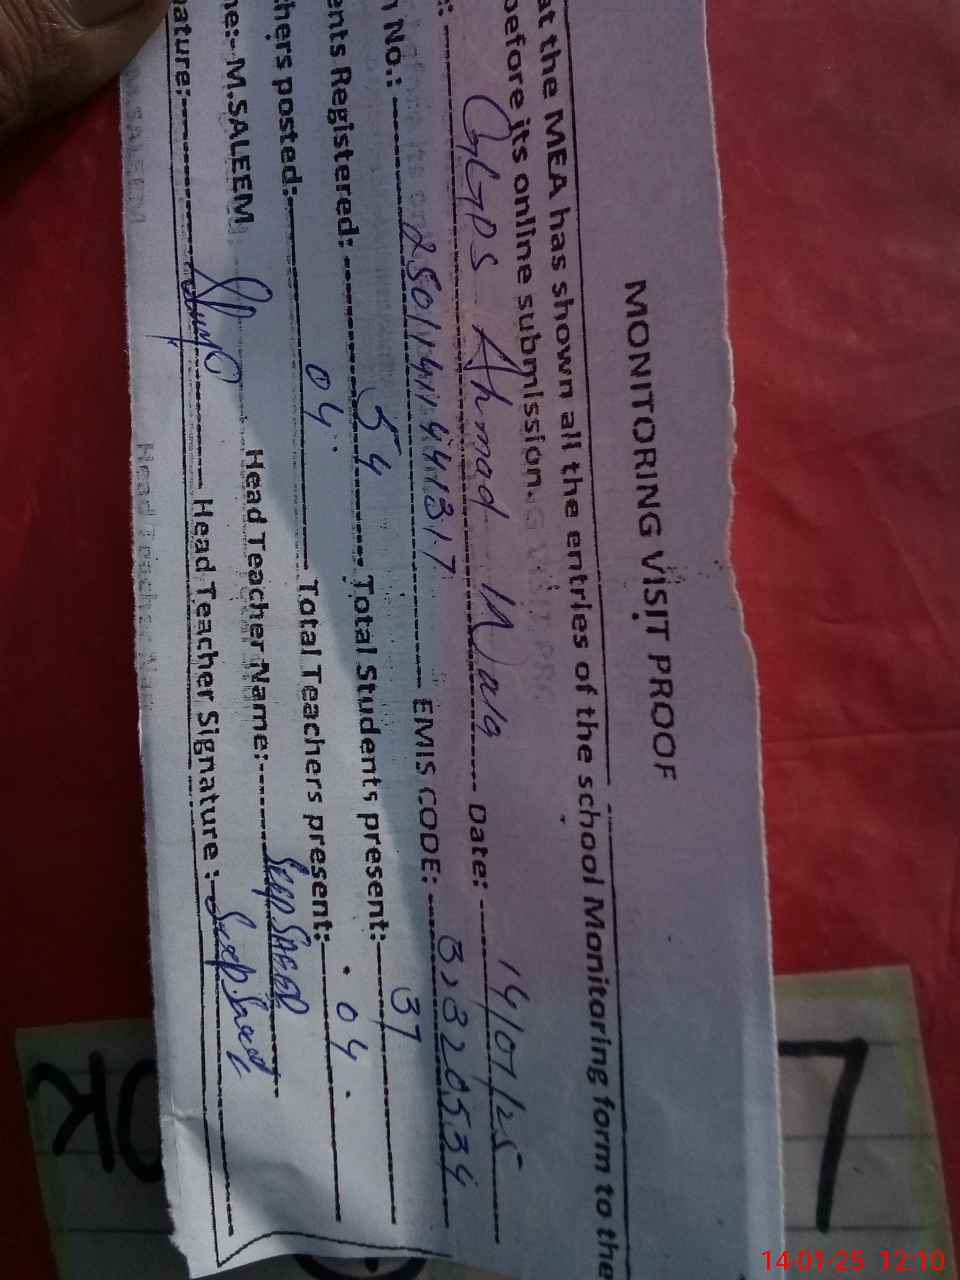 MONITORING VISIT PROOF
at the MEA has shown all the entries of the school Monitoring form to the
before its online submission.
GGPS Ahmad Wala Date: 14/01/25
n No.: EMIS CODE: 33320534
ents Registered: 54 Total Students present: 37
hers posted: 04 Total Teachers present: 04
ne:- M.SALEEM Head Teacher Name: SAEED
nature: Head Teacher Signature :
7
OK
14-01-25 12:10